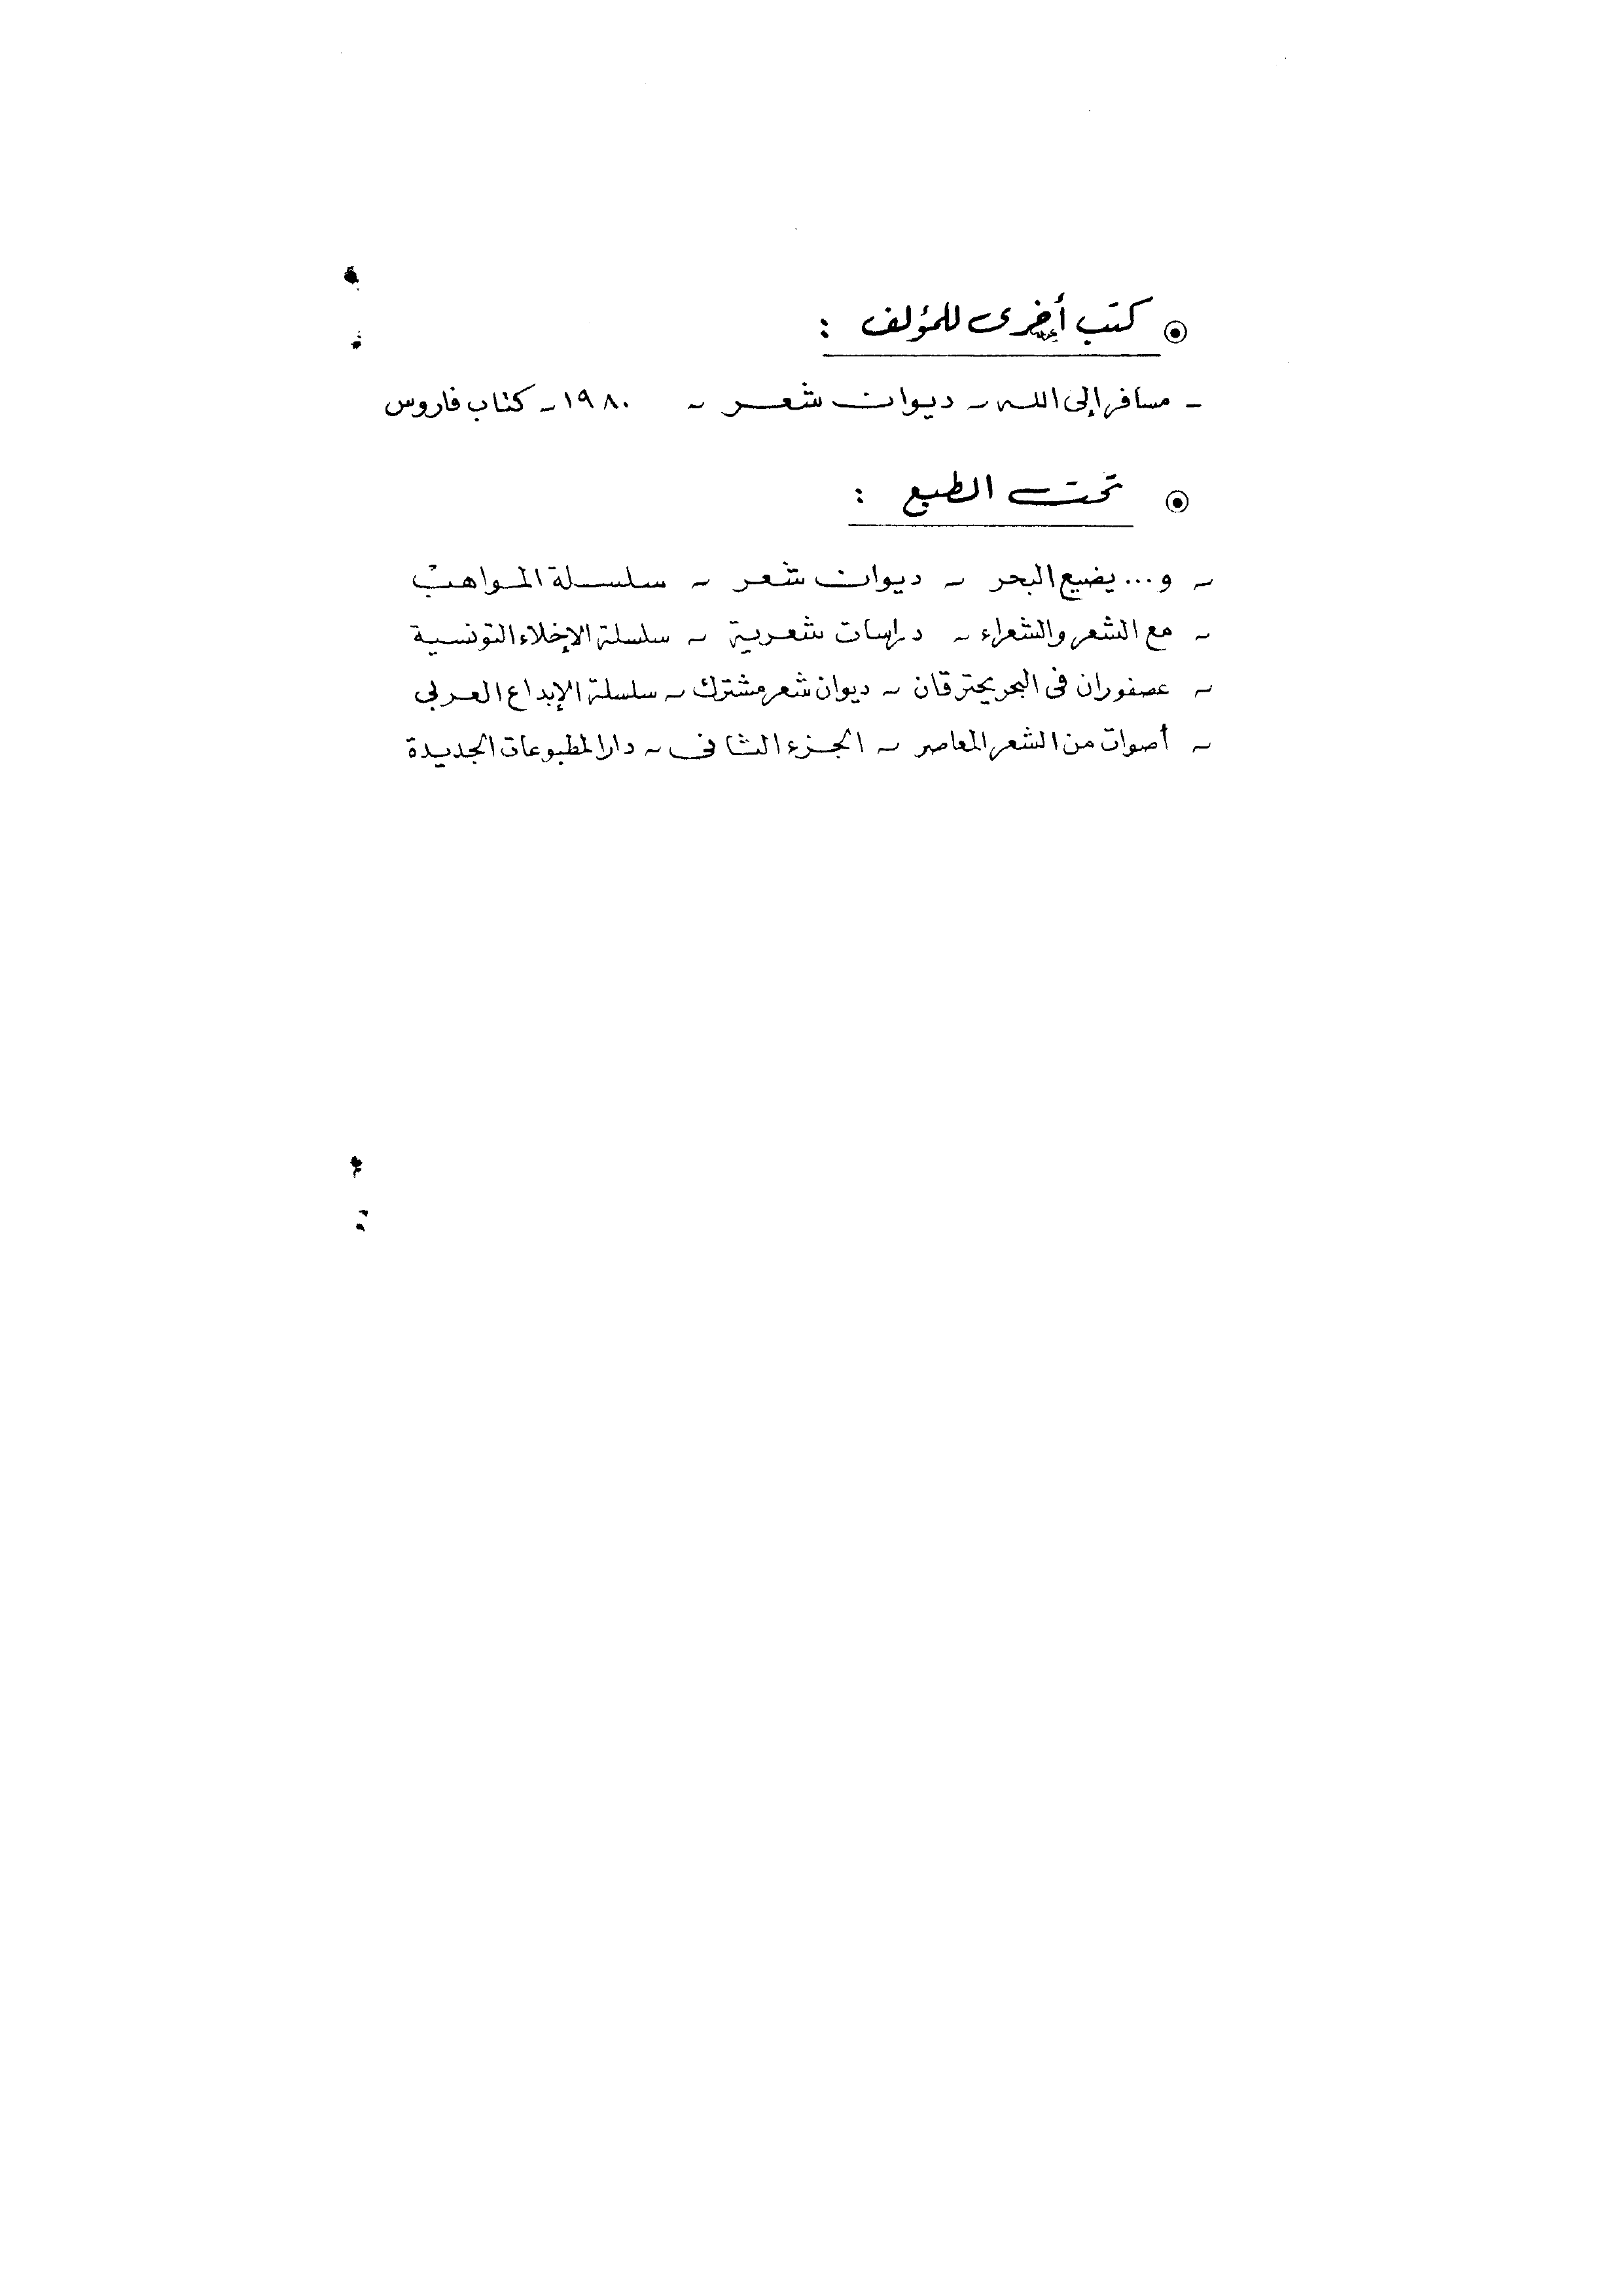 ◉ كتب أخرى للمؤلف :
- مسافر إلى الله - ديوان شعر - ١٩٨٠ - كتاب فاروس
◉ تحت الطبع :
- و... يضيع البحر - ديوان شعر - سلسلة المواهب
- مع الشعر والشعراء - دراسات شعرية - سلسلة الإخلاء التونسية
- عصفوران فى البحر يحترقان - ديوان شعر مشترك - سلسلة الإبداع العربى
- أصوات من الشعر المعاصر - الجزء الثانى - دار المطبوعات الجديدة